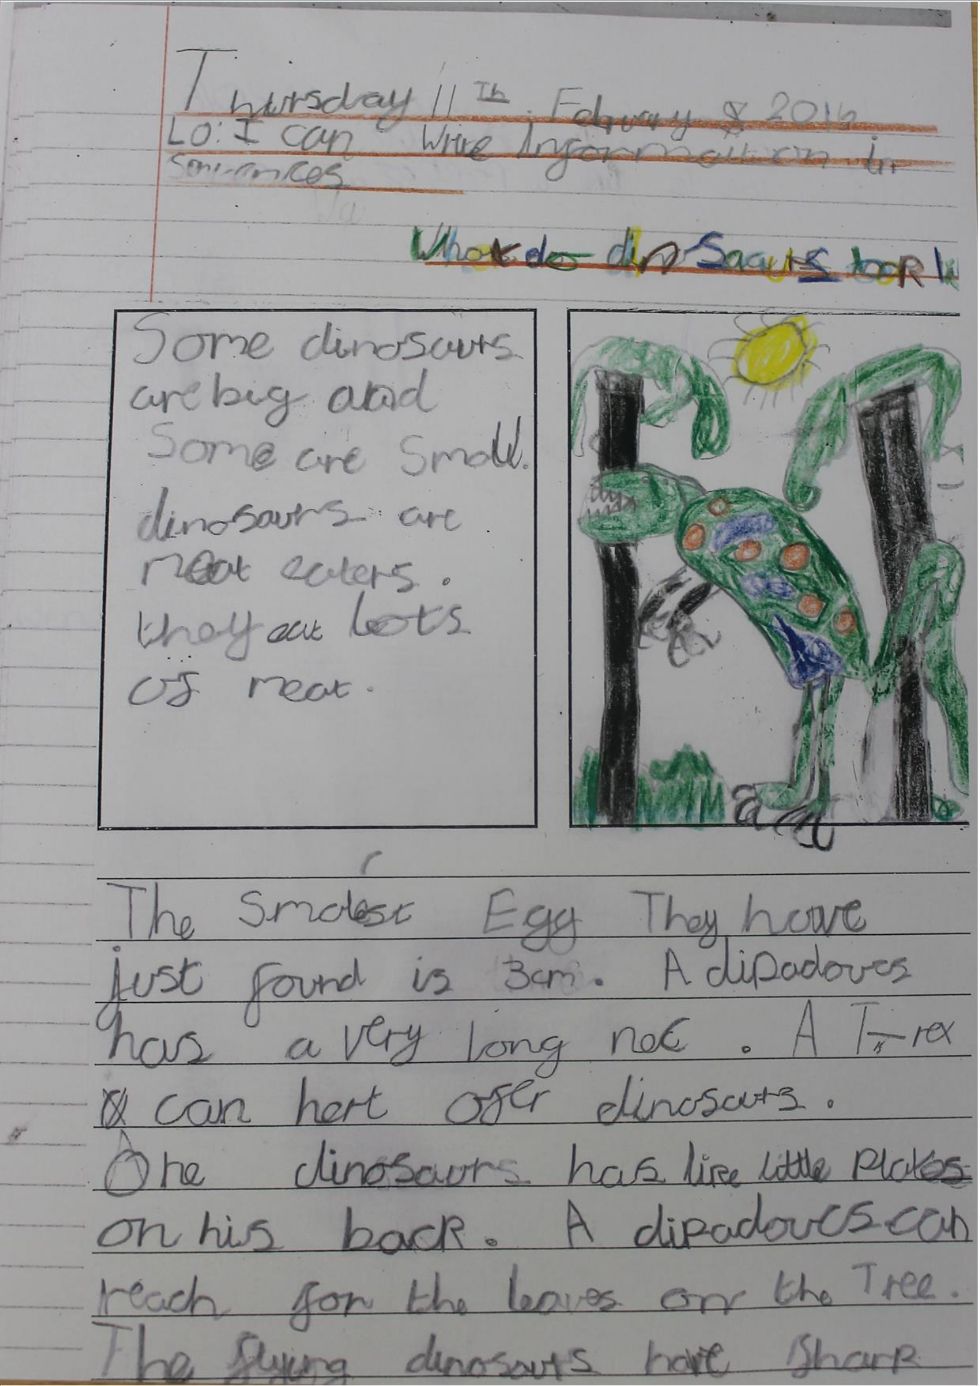 Thursday 11Th February 2016
LO: I can write Information in
Sentences
What do dinosaurs look li
Some dinosaurs
are big and
Some are small.
dinosaurs are
meat eaters.
they eat lots
of meat.
The Smalest Egg They have
just found is 3cm. A dipadoves
has a very long nec. A T-rex
can hert offer dinosaurs.
One dinosaurs has like little Plates
on his back. A dipadoves can
reach for the leaves on the Tree.
The flying dinosaurs have Sharp